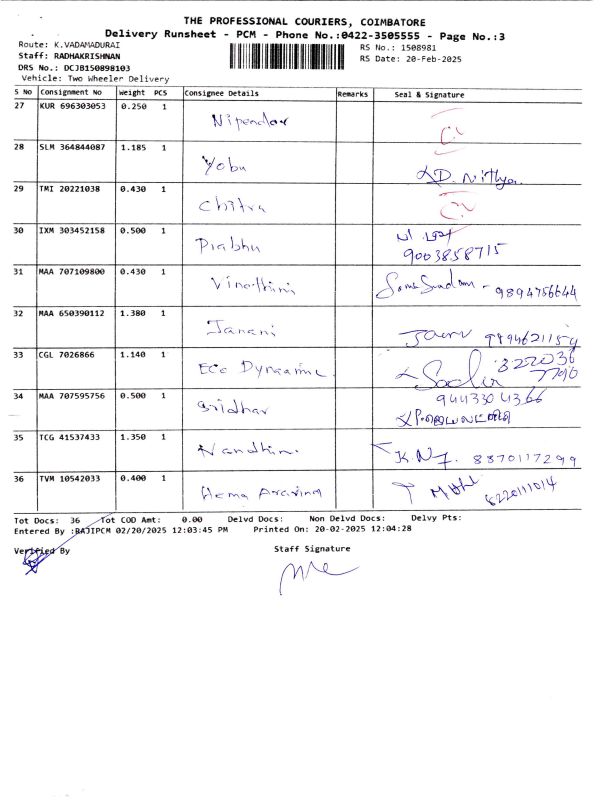 THE PROFESSIONAL COURIERS, COIMBATORE
Delivery Runsheet - PCM - Phone No.:0422-3505555 - Page No.:3
Route: K.VADAMADURAI
RS No.: 1508981
Staff: RADHAKRISHNAN
RS Date: 20-Feb-2025
DRS No.: DCJB150898103
Vehicle: Two Wheeler Delivery
S No Consignment No Weight PCS Consignee Details Remarks Seal & Signature
27 KUR 696303053 0.250 1 Nipendar
28 SLM 364844087 1.185 1 Yobu D. Nithya
29 TMI 20221038 0.430 1 Chitra
30 IXM 303452158 0.500 1 Prabhu
9003858715
31 MAA 707109800 0.430 1 Vinothini - 9894756644
32 MAA 650390112 1.380 1 Janani 9894621154
33 CGL 7026866 1.140 1 Eco Dynaamic
34 MAA 707595756 0.500 1 Sridhar 9443304366
35 TCG 41537433 1.350 1 Nandhini 8870117299
36 TVM 10542033 0.400 1 Hema Aravind 8220111014
Tot Docs: 36 Tot COD Amt: 0.00 Delvd Docs: Non Delvd Docs: Delvy Pts:
Entered By :BAJIPCM 02/20/2025 12:03:45 PM Printed On: 20-02-2025 12:04:28
Verified By Staff Signature